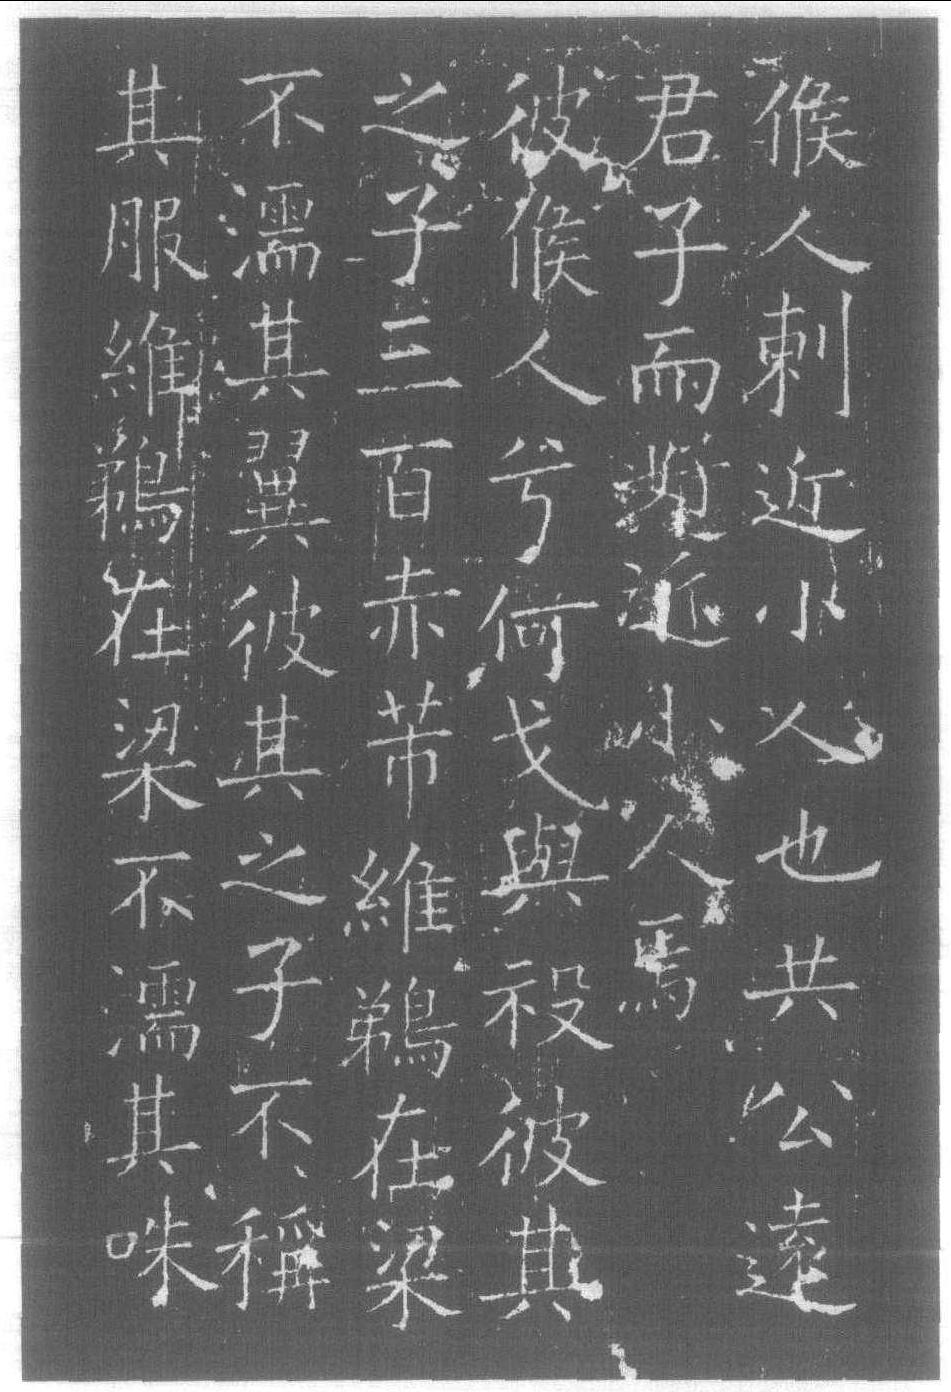 候人刺近小人也共公遠
君子而近小人焉
彼候人兮何戈與祋彼其
之子三百赤芾維鵜在梁
不濡其翼彼其之子不稱
其服維鵜在梁不濡其咮